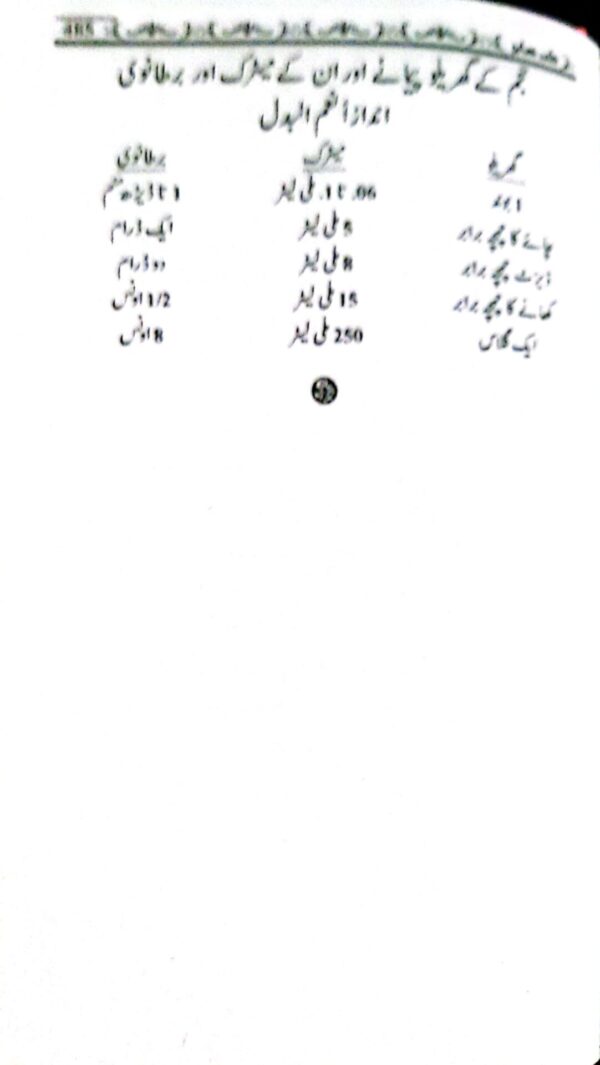 485
حجم کے گھریلو پیمانے اور ان کے میٹرک اور برطانوی
اندازاً نعم البدل
گھریلو میٹرک برطانوی
1 بوند .06 تا .1 ملی لیٹر 1 تا ڈیڑھ منم
چائے کا چمچ برابر 5 ملی لیٹر ایک ڈرام
ڈیزرٹ چمچ برابر 8 ملی لیٹر دو ڈرام
کھانے کا چمچ برابر 15 ملی لیٹر 1/2 اونس
ایک گلاس 250 ملی لیٹر 8 اونس